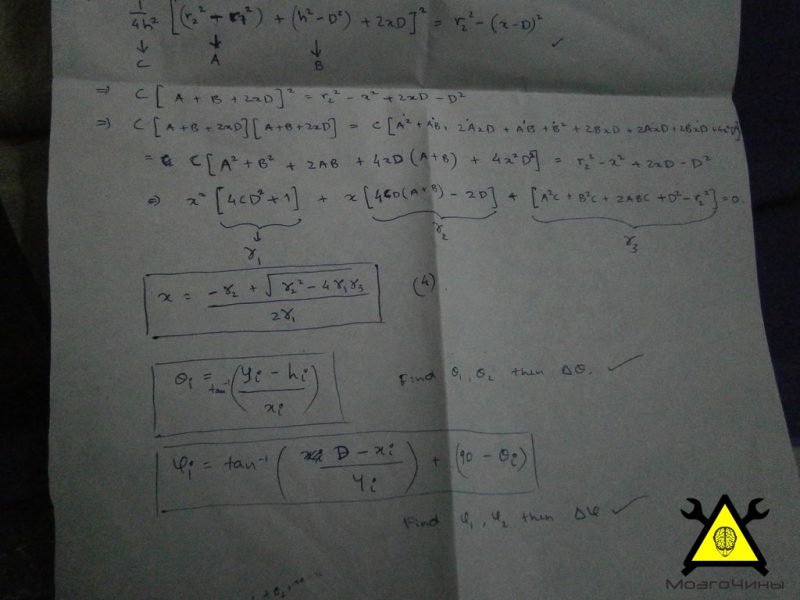 1/4h² [(r₂² - r₁²) + (h² - D²) + 2xD]² = r₂² - (x-D)² ✓
↓ ↓ ↓
C A B
⇒ C [ A + B + 2xD ]² = r₂² - x² + 2xD - D²
⇒ C [ A+B+2xD ] [A+B+2xD] = C [A² + AB + 2AxD + AB + B² + 2BxD + 2AxD + 2BxD + 4x²D²]
= C [A² + B² + 2AB + 4xD (A+B) + 4x²D²] = r₂² - x² + 2xD - D²
⇒ x² [4CD² + 1] + x [4CD(A+B) - 2D] + [A²C + B²C + 2ABC + D² - r₂²] = 0.
γ₁ γ₂ γ₃
x = (-γ₂ + √(γ₂² - 4γ₁γ₃)) / 2γ₁ (4).
θi = tan⁻¹ ((yi - hi) / xi) Find θ₁, θ₂ then Δθ. ✓
φi = tan⁻¹ ((D - xi) / yi) + (90 - θi)
Find φ₁, φ₂ then Δφ ✓
МозгоЧины